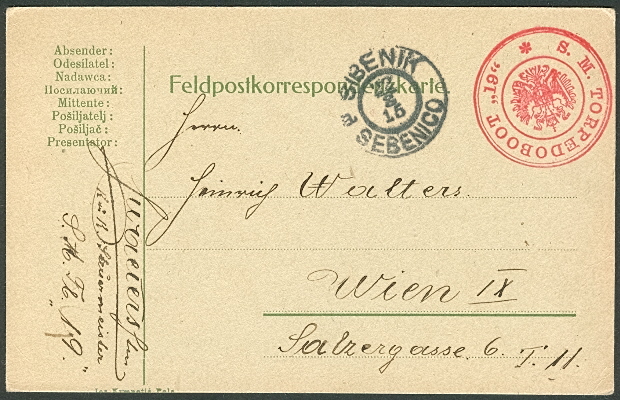 Absender:
Odesílatel:
Nadawca:
Посилаючий:
Mittente:
Pošiljatelj:
Pošiljač:
Presentator:
Feldpostkorrespondenzkarte.
ŠIBENIK
15
SEBENICO
* S. M. TORPEDOBOOT „19“
Herrn
Heinrich Walters
Wien IX
Salzergasse 6. T. 11.
K.u.K. Steuermeister
S. M. Tb. „19.“
Jos. Krmpotić Pola